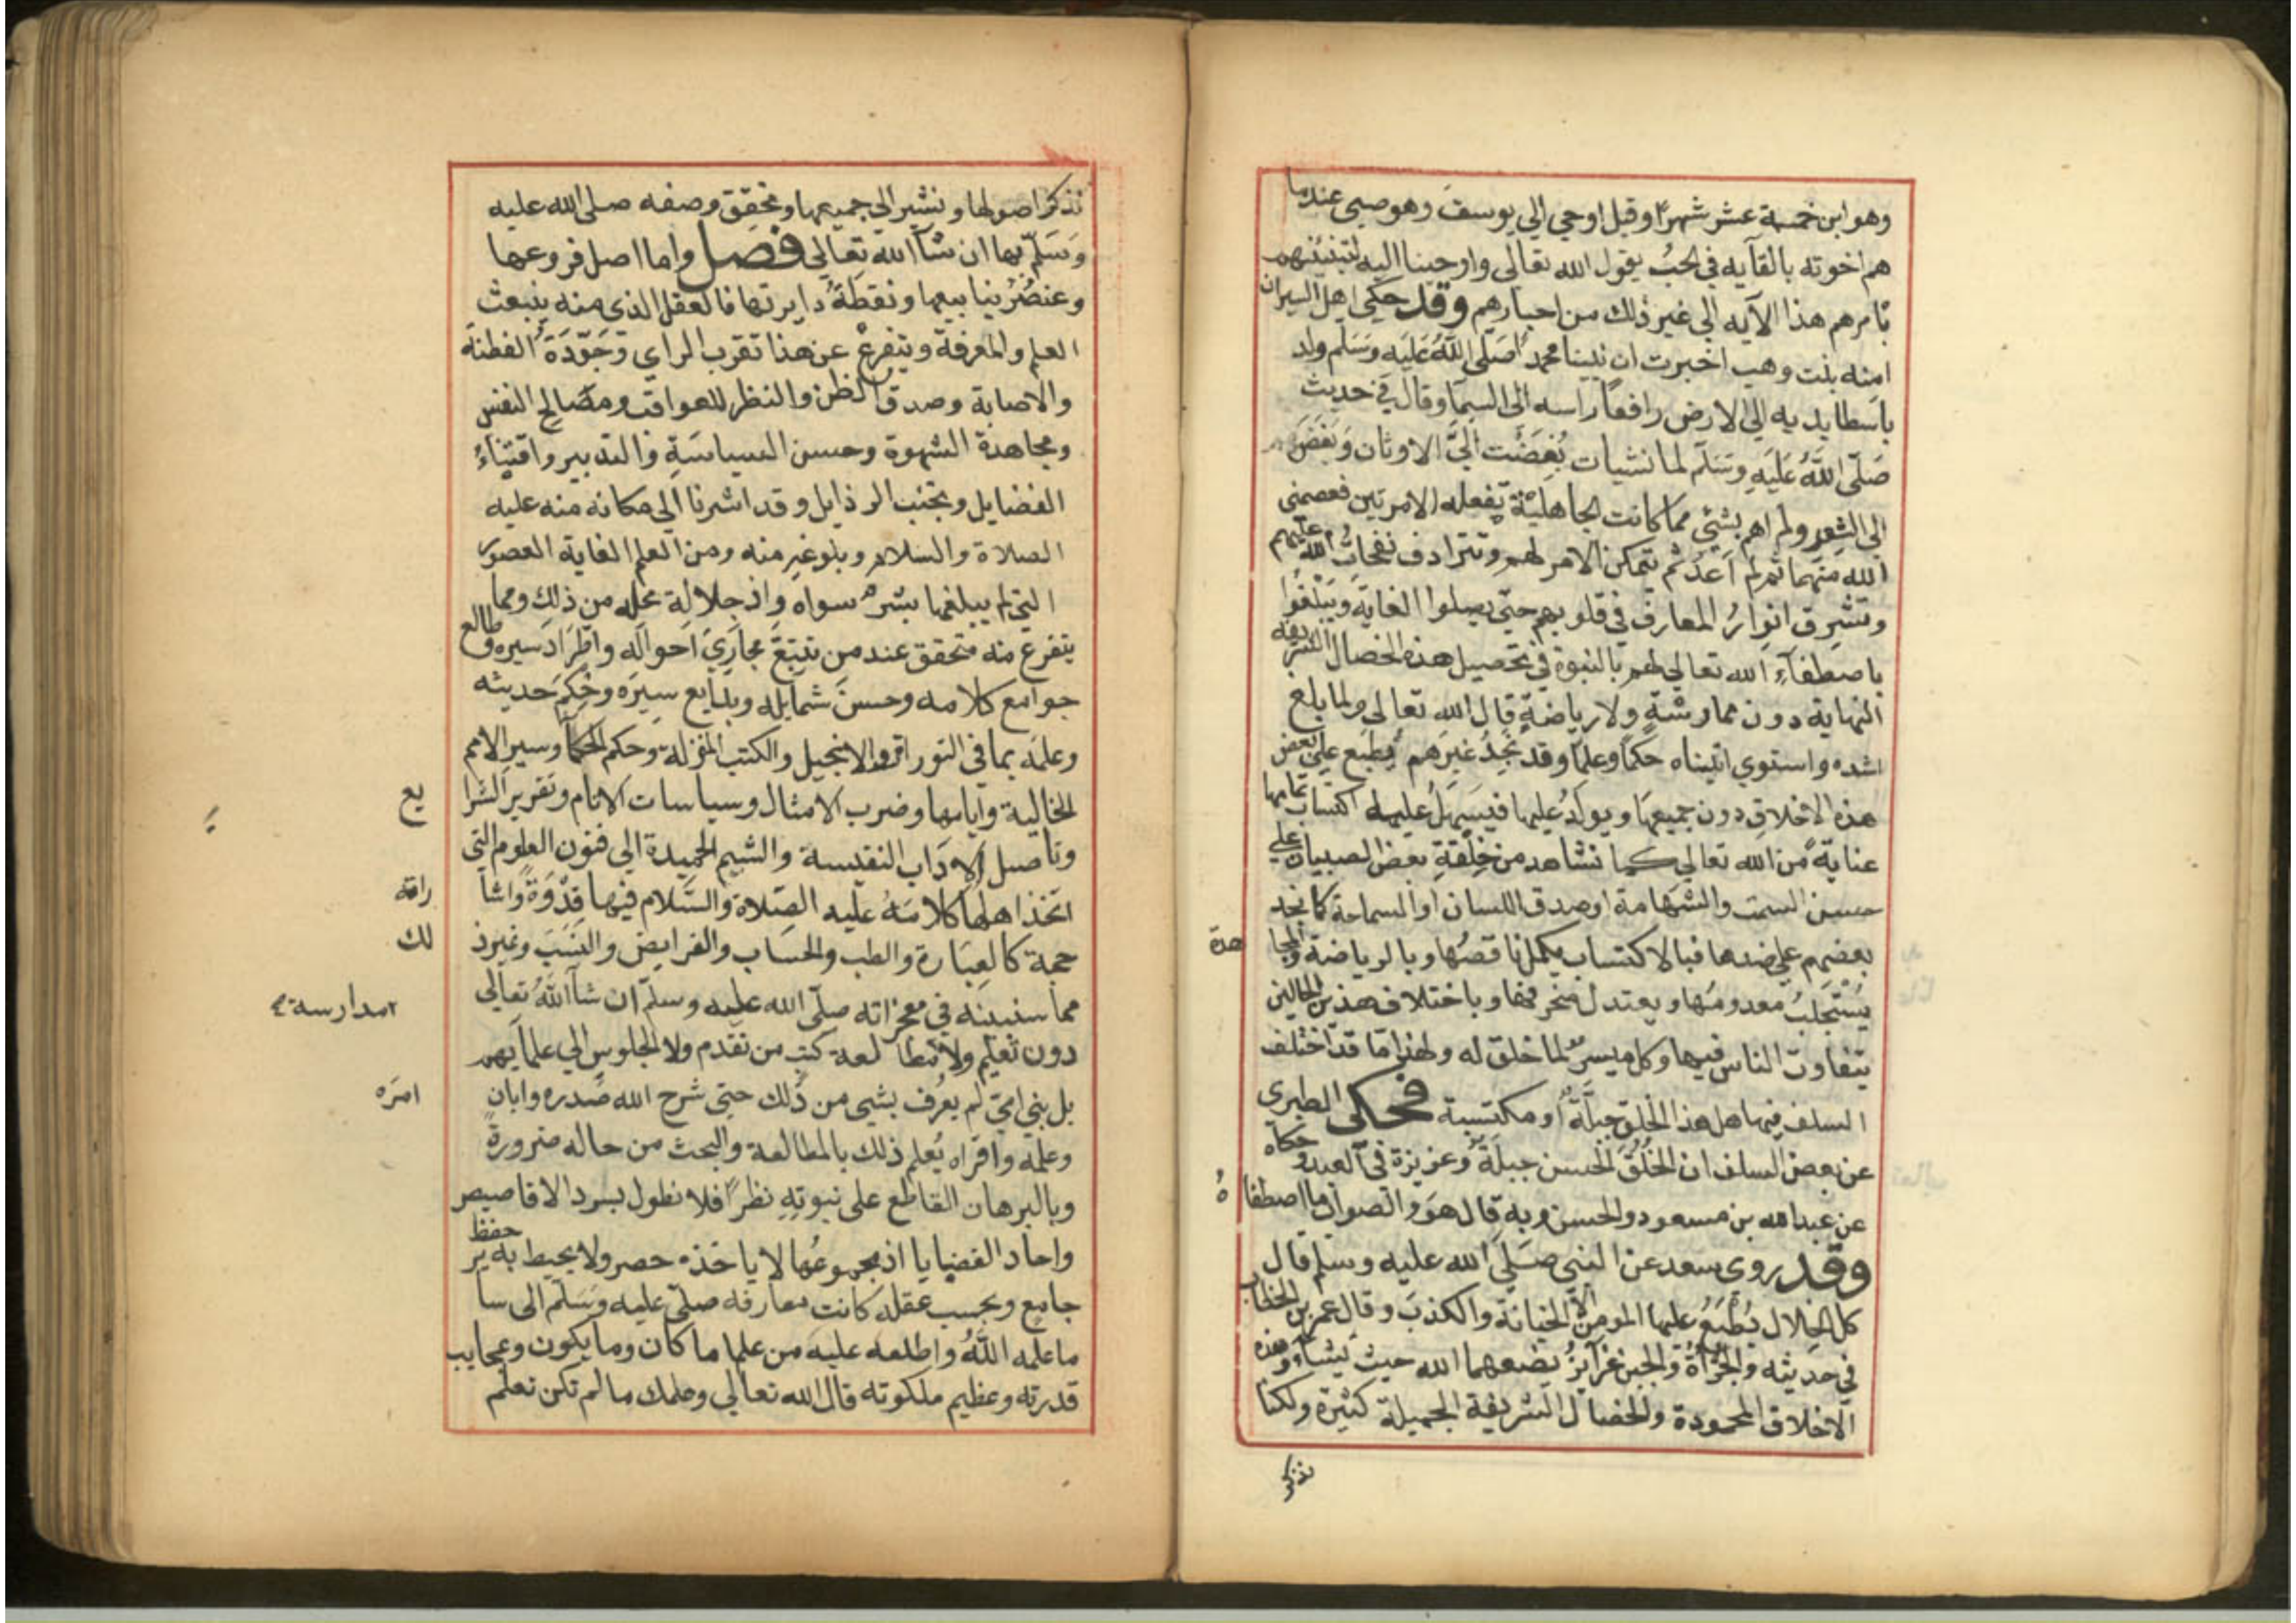 وهو ابن خمسة عشر شهرًا وقيل اوحي الي يوسف وهو صبي عندما
هم اخوته بالقآيه في الجب يقول الله تعالى واوحينا اليه لتنبئنهم
بامرهم هذا الآيه الي غير ذلك من اخبارهم وقد حكي اهل السير ان
امنه بنت وهب اخبرت ان نبينا محمدًا صَلَّى اللَّهُ عَلَيْهِ وَسَلم ولد
باسطا يديه الي الارض رافعًا راسه الى السمآ وقال في حديث
صَلَّى اللَّهُ عَلَيْهِ وَسَلم لما نشيات بُغِضَت اليَّ الاوثان وَبَغضَ
الي الشعر ولم اهم بشئي مما كانت الجاهلية تفعله الا مرتين فعصمني
الله منهما ثم لم اَعُد ثم يتمكن الامر لهم وتترادف نفحات الله عليهم
وتشرق انوارُ المعارف في قلوبهم حتي يصلوا الغاية ويَبْلغُوا
باصطفآءِ الله تعالي لهم بالنبوة في تحصيل هذه الخصال الشريفه
النهاية دون ممارسَةٍ ولا رياضةٍ قال الله تعالى ولما بلغ
اشده واستوي اتيناه حكمًا وعلمًا وقد نَجِدُ غيرَهم يُطبَع علي بعض
هذه الاخلاق دون جميعها ويولدُ عليها فيَسهلُ عليه اكتساب تمامها
عنايةً من الله تعالي كما نشاهد من خِلقةِ بعض الصبيان علي
حسن السمت والشهامة او صدق اللسان او السماحة كما نجد
بعضهم علي ضدها فبالاكتساب يكمل ناقصُها وبالرياضة والمجا
هدة
يُسْتَجلبُ معدومُها ويعتدل منحرفها وباختلاف هذين الحالين
يتفاوت الناس فيها وكل ميسرٌ لما خلق له ولهذا ما قد اختلف
السلف فيها هل هذا الخلق جبلَّةٌ او مكتسبة فحكى الطبري
عن بعض السلف ان الخُلُقَ الحسن جبلَةٌ وغريزة في العبد وحكاه
عن عبد الله بن مسعود والحسن وبه قال هوَ والصواب ما اصطفا
هُ
وقد روى سعد عن النبي صَلَى الله عليه وسلم قال
كل الخلال يُطْبَعُ عليها المومن الا الخيانة والكذبَ وقال عمر بن الخطاب
في حديثه والجُرْأةُ والجبن غرآيزُ يضعهما الله حيث يَشآءُ وهذه
الاخلاق المحمودة والخصال الشريفة الجميلة كثيرة ولكنا
نذكر
نذكر اصولها ونشير الي جميعها ونحقق وصفه صلى الله عليه
وَسَلّم بها ان شآ الله تعَالي فصل واما اصل فروعها
وعنصُرُ ينابيعها ونقطَةُ دايرتها فالعقل الذي منه ينبعث
العلم والمعرفة ويتفرعُ عن هذا تقرب الراي وَجَوّدَةُ الفطنة
والاصابة وصدق الظن والنظر للعواقب ومصَالح النفس
ومجاهدة الشهوة وحسن السياسَةِ والتدبير واقتِناءُ
الفضايل وتجنب الرذايل وقد اشرنا الي مكانه منه عليه
الصلاة والسلام وبلوغهِ منه ومن العلم الغاية القصوي
التي لم يبلغها بشرٌ سواه واذ جلالة محله من ذلك ومما
يتفرع منه متحقق عند من تتبَّعَ مجاريَ احواله واطِّرَادَ سيره وطالع
جوامع كلامه وحسنَ شمايله وبدايع سِيَرَه وحِكَمَ حديثه
وعلمَه بما في التوراة والانجيل والكتب المنزلة وحكم الحكمآ وسير الامم
الخالية وايامها وضرب الامثال وسياسات الانام وتقرير الشرا
يع
وتاصيل الادَاب النفيسة والشيم الحميدة الي فنون العلوم التي
اتخذ اهلها كلامَهُ عليه الصّلاة والسَّلام فيها قِدْوَةً واشا
راته
حجة كالعِبَارة والطب والحسَاب والفرايض والنسَبَ وغير ذ
لك
مما سنبينه في معجزاته صلّى الله عليه وسلّم ان شآ اللَّهُ تعالي
دون تعليم ولا مطالعة كتب من تقدم ولا الجلوس الي علمآيهم
مدارسة
بل نبي امي لم يعْرف بشيء من ذلك حتي شرح الله صَدره وابان
امرَه
وعلمه واقراه يُعلم ذلك بالمطالعة والبحث من حاله ضرورةً
وبالبرهان القاطع على نبوته نظرًا فلا نطول بسرد الاقاصيص
واحاد القضايا اذ مجموعُها لا ياخذه حصر ولا يحيط به حفظ
جامع وبحسب عقله كانت معارفه صلّى عليه وَسَلّم الى سا
ير
ما علمه اللَّهُ واطلعه عليه من علم ما كان وما يكون وعجايب
قدرته وعظيم ملكوته قال الله تعالي وعلمك ما لم تكن تعلم